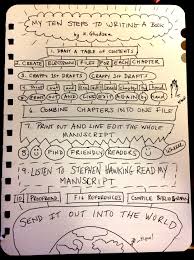 MY TEN STEPS TO WRITING A BOOK
by K. Ghodsee
1. DRAFT A TABLE OF CONTENTS
2. CREATE ELECTRONIC FILES FOR EACH CHAPTER
3. CRAPPY 1ST DRAFTS CRAPPY 1ST DRAFTS
6 COMBINE CHAPTERS INTO ONE FILE
7. PRINT OUT AND LINE EDIT THE WHOLE
MANUSCRIPT
8 FIND FRIENDLY READERS
9. LISTEN TO STEPHEN HAWKING READ MY
MANUSCRIPT
10. PROOFREAD FIX REFERENCES COMPILE BIBLIOGRAPHY
SEND IT OUT INTO THE WORLD